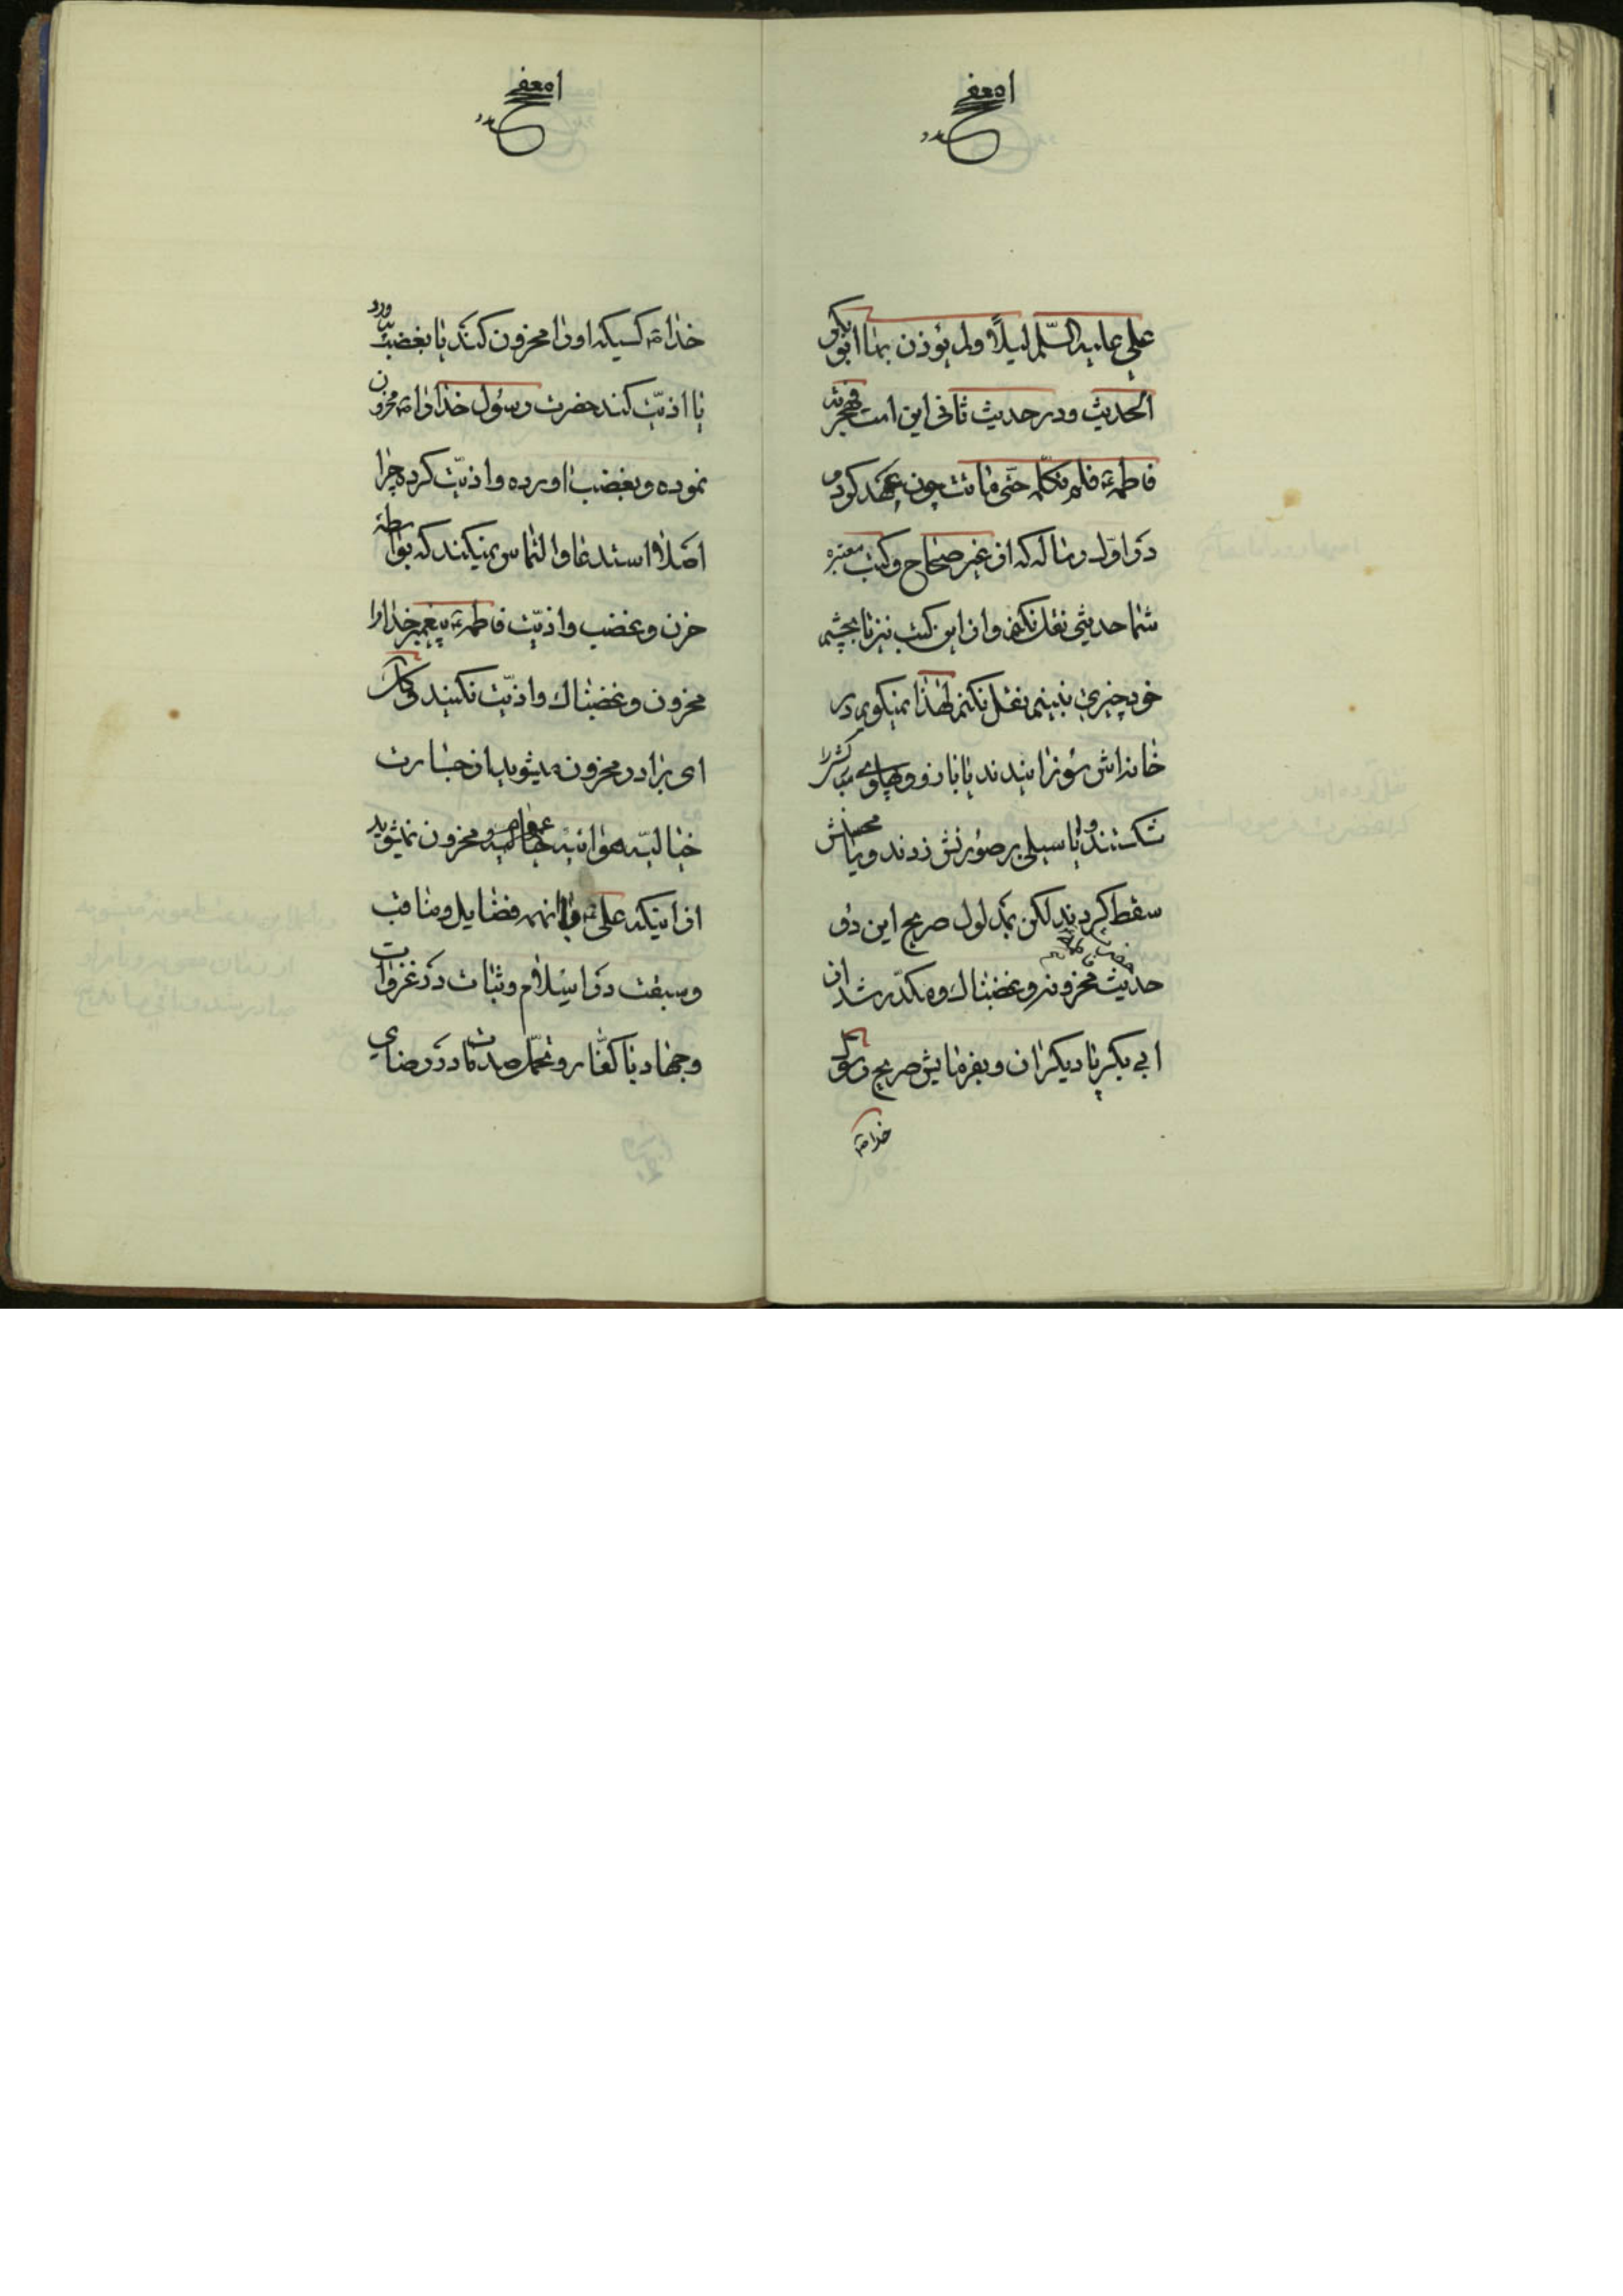 علی علیه السّلم لیلاً و لم یؤذن بها ابوبکر
الحدیث و در حدیث ثانی این است فهجرته
فاطمةؑ فلم تکلّمه حتّی ماتت چون عهد کردم
در اوّل رساله که از غیر صحاح و کتب معتبره
شما حدیثی نقل نکنم و از این کتب نیز تا بچشم
خود چیزی نبینم نقل نکنم لهذا نمیگویم در
خانه‌اش سوزانیدند یا بازو و پهلوی مبارکش را
شکستند و یا سیلی بر صورتش زدند و یا محسنش
سقط کردند لکن بمدلول صریح این دو
حدیث محزونه و غضبناک و مکدّر شد از
ابی بکر یا دیگران و بفرمایش صریح رسول
خداؐ
خداؐ کسیکه او را محزون کند یا بغضب بیاورد
یا اذیّت کند حضرت رسول خدا را محزون
نموده و بغضب اورده و اذیّت کرده چرا
اصلاً استدعا و التماس نمیکنند که بواسطه
حزن و غضب و اذیّت فاطمهؑ پیغمبر خدا را
محزون و غضبناک و اذیّت نکنید
ای برادر محزون میشوید از جسارت
محزون نمیشوید
از اینکه علی با انهمه فضایل و مناقب
و سبقت در اسلام و ثبات در غزوات
و جهاد با کفّار و تحمّل صدمات در رضای